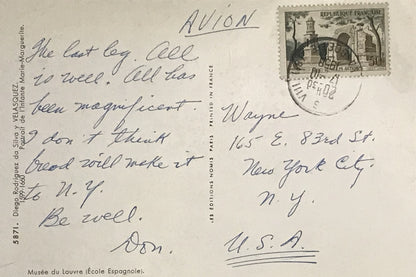 AVION
The last leg. All
is well. All has
been magnificent.
I don't think
bread will make it
to N.Y.
Be well.
Don.
Wayne
165 E. 83rd St.
New York City
N.Y.
U.S.A.
5871. Diego Rodriguez da Silva y VELASQUEZ
1599-1660
Portrait de l'Infante Marie-Marguerite.
Musée du Louvre (École Espagnole).
LES ÉDITIONS NOMIS PARIS PRINTED IN FRANCE
REPUBLIQUE FRANÇAISE